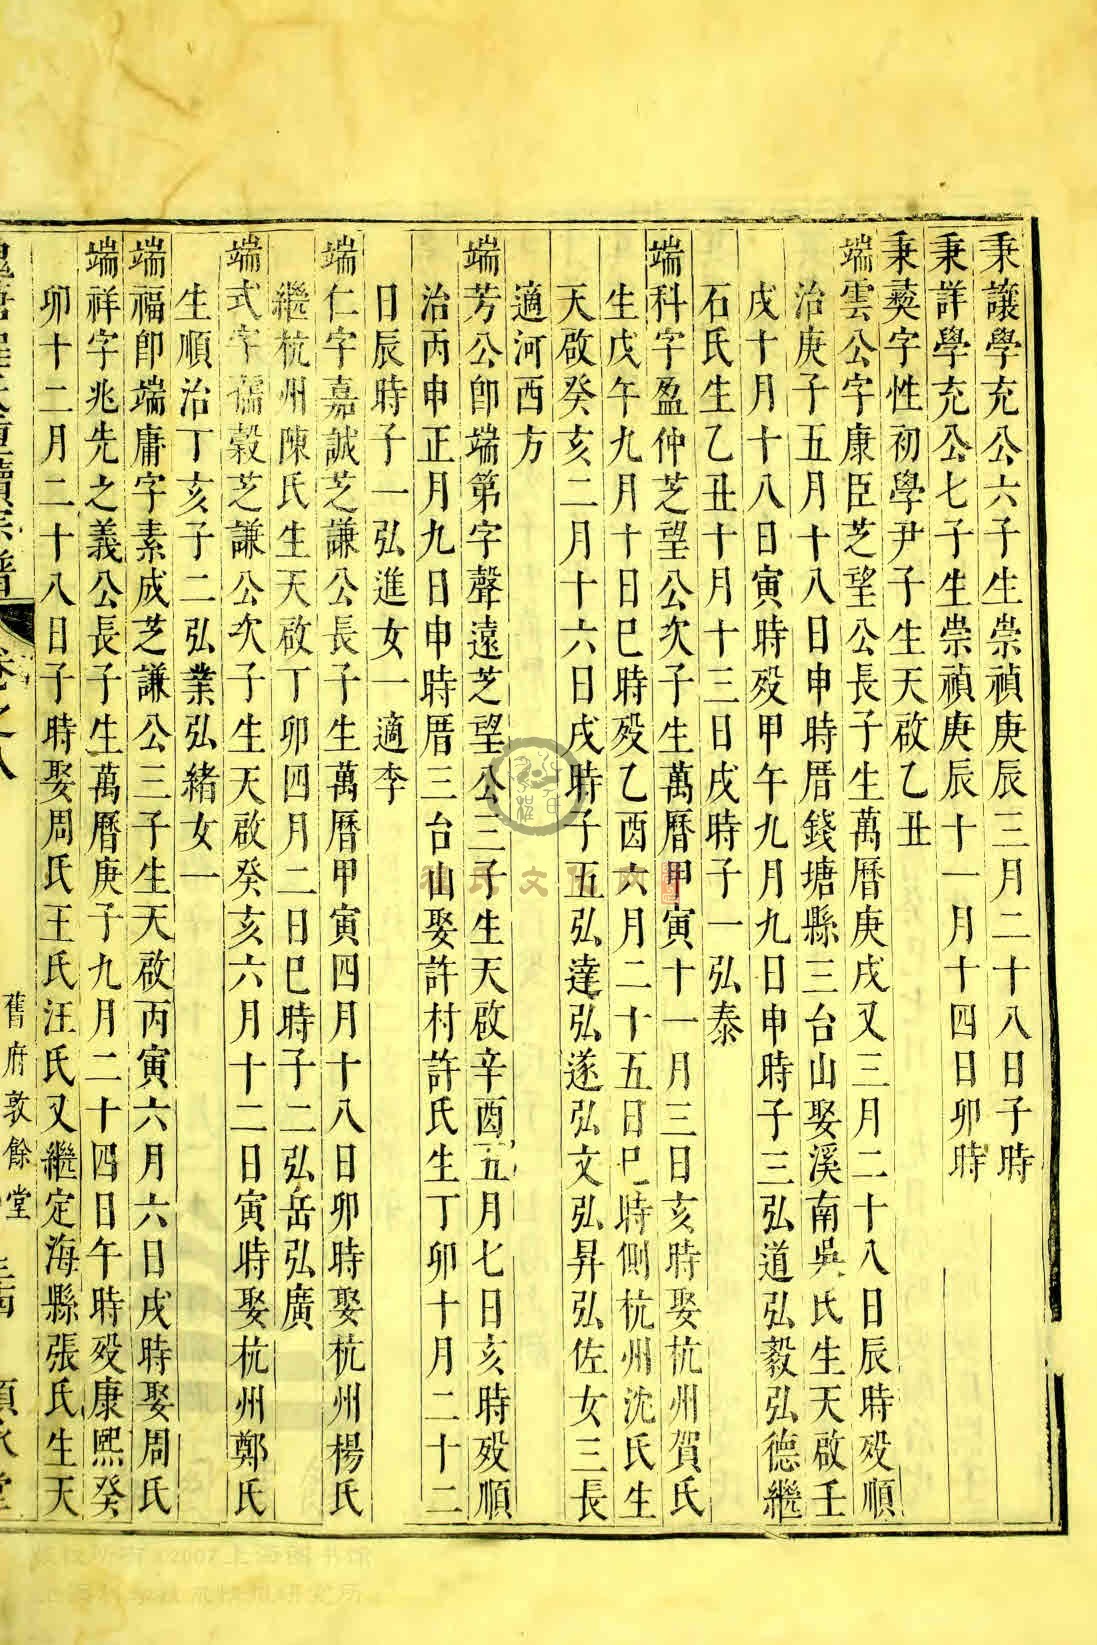 秉讓學充公六子生崇禎庚辰三月二十八日子時
秉詳學充公七子生崇禎庚辰十一月十四日卯時
秉蓌字性初學尹子生天啟乙丑
端雲公字康臣芝望公長子生萬曆庚戌又三月二十八日辰時歿順
治庚子五月十八日申時厝錢塘縣三台山娶溪南吳氏生天啟壬
戌十月十八日寅時歿甲午九月九日申時子三弘道弘毅弘德繼
石氏生乙丑十月十三日戌時子一弘泰
端科字盈仲芝望公次子生萬曆甲寅十一月三日亥時娶杭州賀氏
生戊午九月十日巳時歿乙酉六月二十五日巳時側杭州沈氏生
天啟癸亥二月十六日戌時子五弘達弘遂弘文弘昇弘佐女三長
適河西方
端芳公卽端第字聲遠芝望公三子生天啟辛酉五月七日亥時歿順
治丙申正月九日申時厝三台山娶許村許氏生丁卯十月二十二
日辰時子一弘進女一適李
端仁字嘉誠芝謙公長子生萬曆甲寅四月十八日卯時娶杭州楊氏
繼杭州陳氏生天啟丁卯四月二日巳時子二弘岳弘廣
端式字儒穀芝謙公次子生天啟癸亥六月十二日寅時娶杭州鄭氏
生順治丁亥子二弘業弘緒女一
端福卽端庸字素成芝謙公三子生天啟丙寅六月六日戌時娶周氏
端祥字兆先之義公長子生萬曆庚子九月二十四日午時歿康熙癸
卯十二月二十八日子時娶周氏王氏汪氏又繼定海縣張氏生天
卷之八
舊府敦餘堂
程氏文化网
版权所有©2007上海图书馆
上海科学技术情报研究所